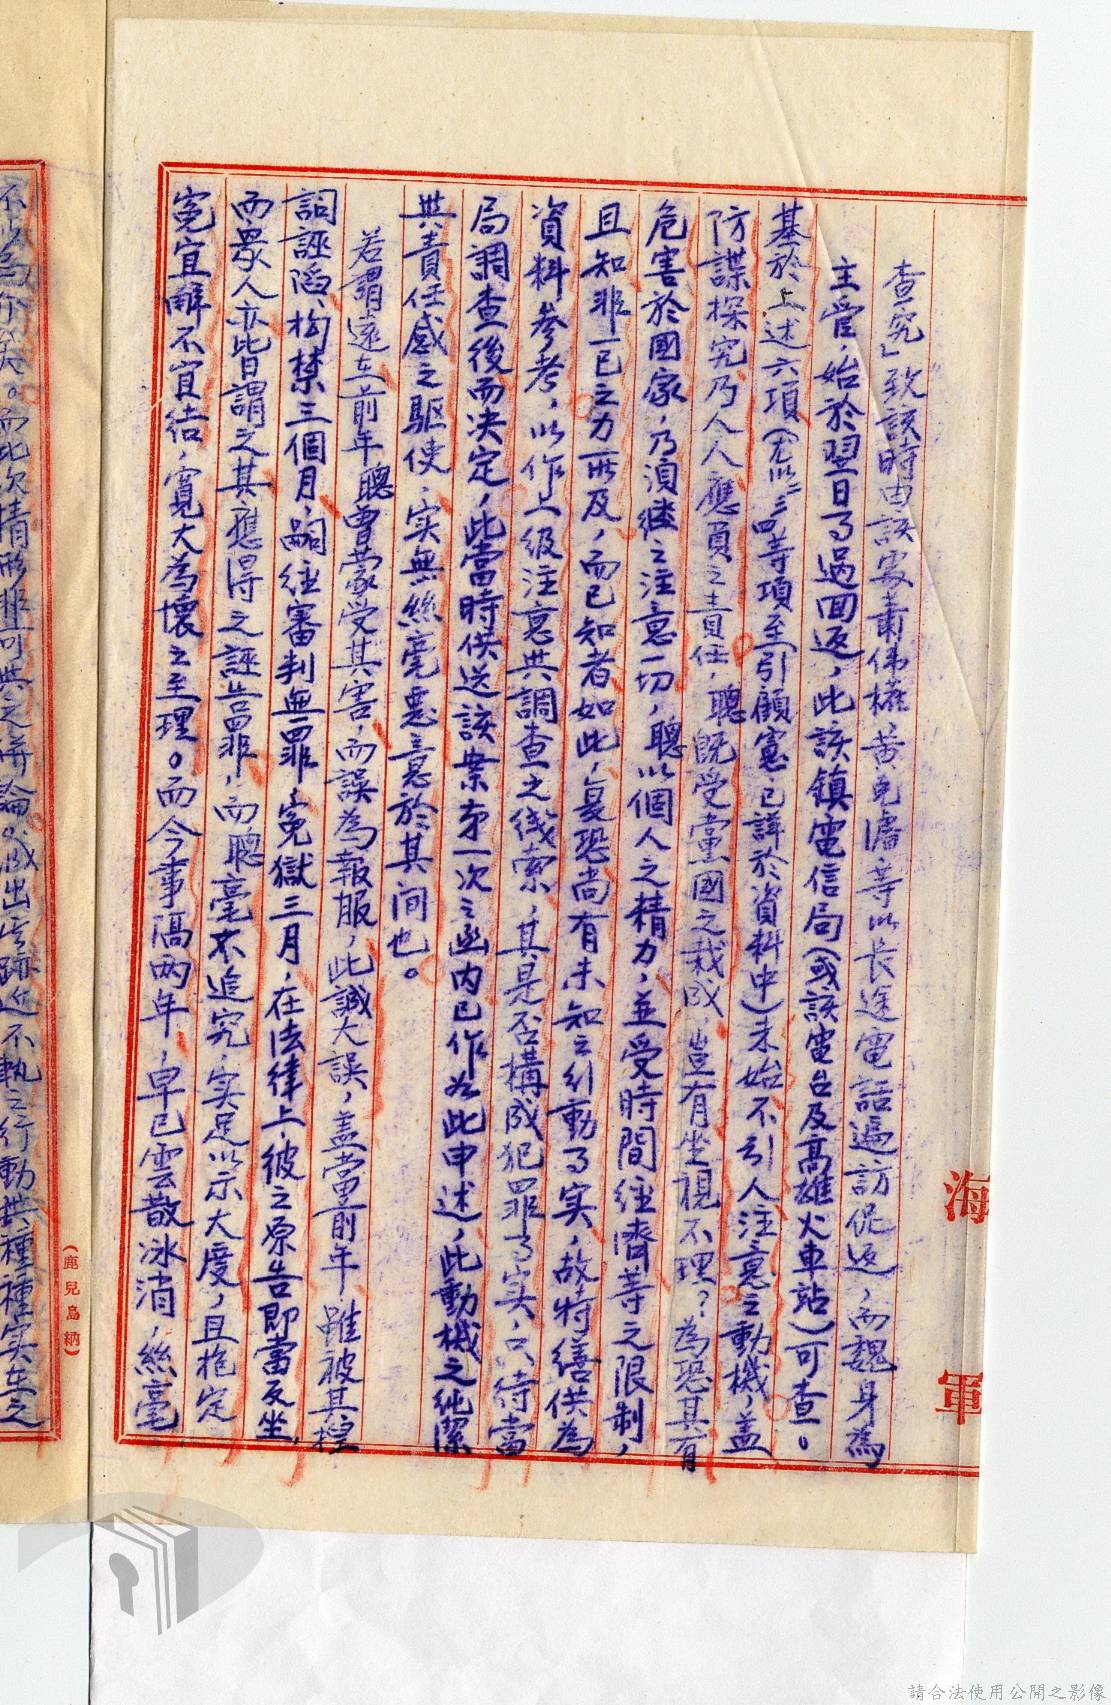 查究」致該時由該家肅佛權、黃克濬等以長途電話遍訪促返，而魏身為
主管始於翌日了過回返，此該鎮電信局（或該電台及高雄火車站）可查。
基於上述六項（尤以二三四等項至引顧憲，已詳於資料中）未始不引人注意之動機，蓋
防諜探究乃人人應負之責任，聰既受黨國之栽成，豈有坐視不理？為恐其有
危害於國家，乃須繼之注意一切，聰以個人之精力，並受時間經濟等之限制，
且知非一己之力所及，而已知者如此，复恐尚有未知之引動了实，故特繕供為
資料參考，以作上级注意與調查之线索，其是否構成犯罪了实，只待當
局調查後而决定，此當時供送該案第一次之函内已作为此申述，此動機之純潔
與責任感之驅使，实無絲毫惡意於其间也。
若謂遠在前年聰曾蒙受其害，而誤為報服，此誠大誤，盖當前年雖被其揑
詞誣陷、构禁三個月，嗣经審判無罪，寃獄三月，在法律上彼之原告即當反坐，
而眾人亦皆謂之其應得之誣告罪，而聰毫不追究，实足以示大度，且抱定
寃宜解不宜结，寬大為懷之至理。而今事隔两年，早已雲散冰消，絲毫
不以為介矣。而此次情形非可與之併論。或出告踪近不軌之行動與種種实在之
（鹿兒島納）
海軍
請合法使用公開之影像